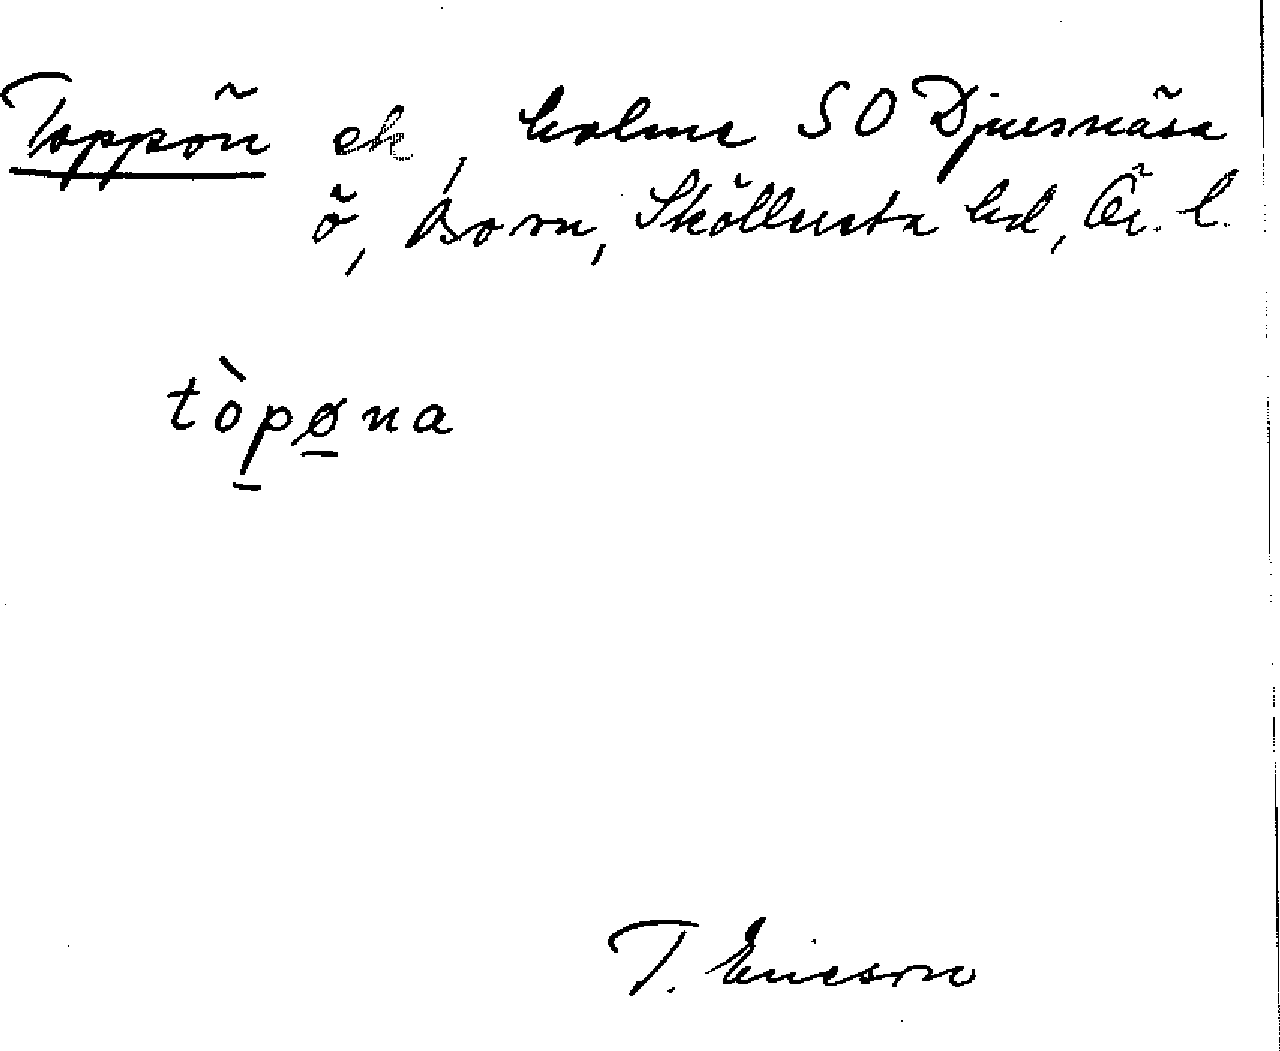 Toppön ek, holme SO Djursnäsa
ö, Born, Sköllersta hd, Ör. l.
tòpøna
T. Ericson